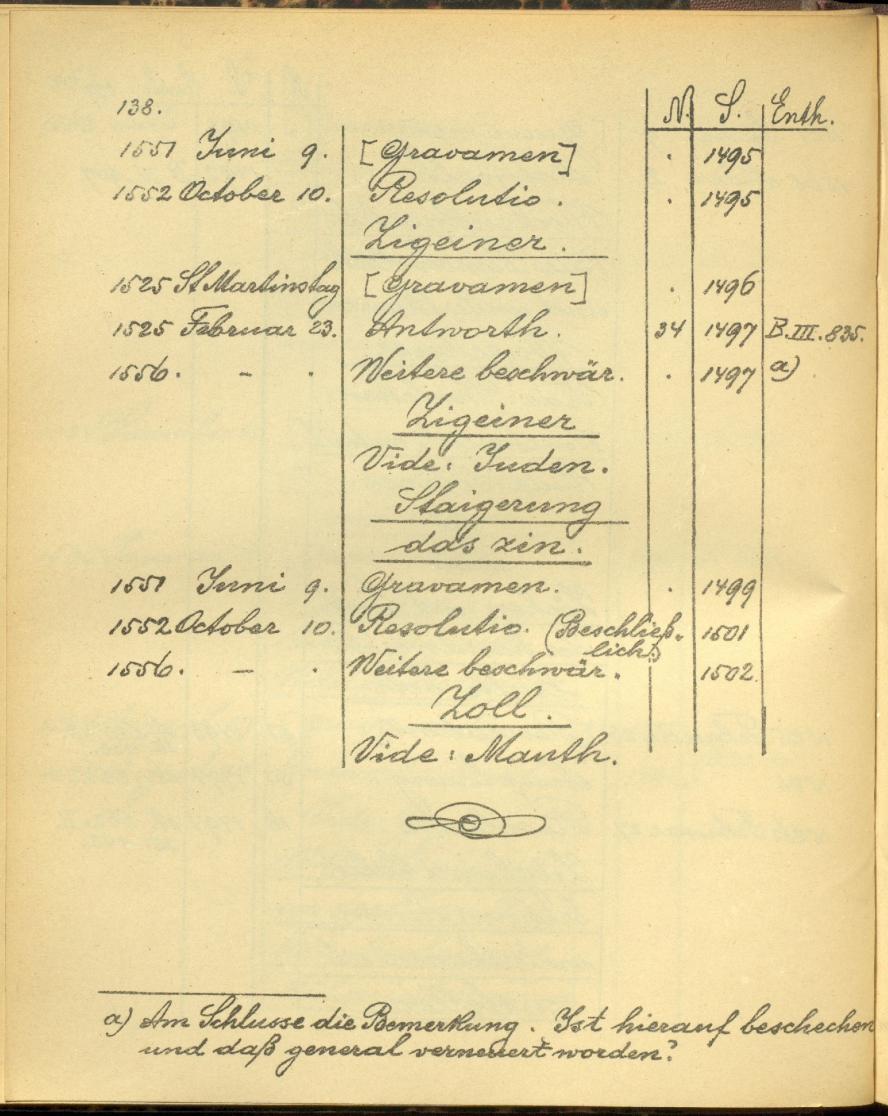 138. N. S. Enth.
1551 Juni 9. [Gravamen] . 1495
1552 October 10. Resolutio. . 1495
Zigeiner.
1525 St Martinstag [Gravamen] . 1496
1525 Februar 23. Antworth. 34 1497 B.III.835.
1556. - . Weitere beschwär. . 1497 a)
Zigeiner
Vide: Juden.
Staigerung
das zin.
1551 Juni 9. Gravamen. . 1499
1552 October 10. Resolutio. (Beschließ- 1501
lich.)
1556. - . Weitere beschwär. 1502.
Zoll.
Vide: Mauth.
a) Am Schlusse die Bemerkung. Ist hierauf beschechen
und daß general verneuert worden?